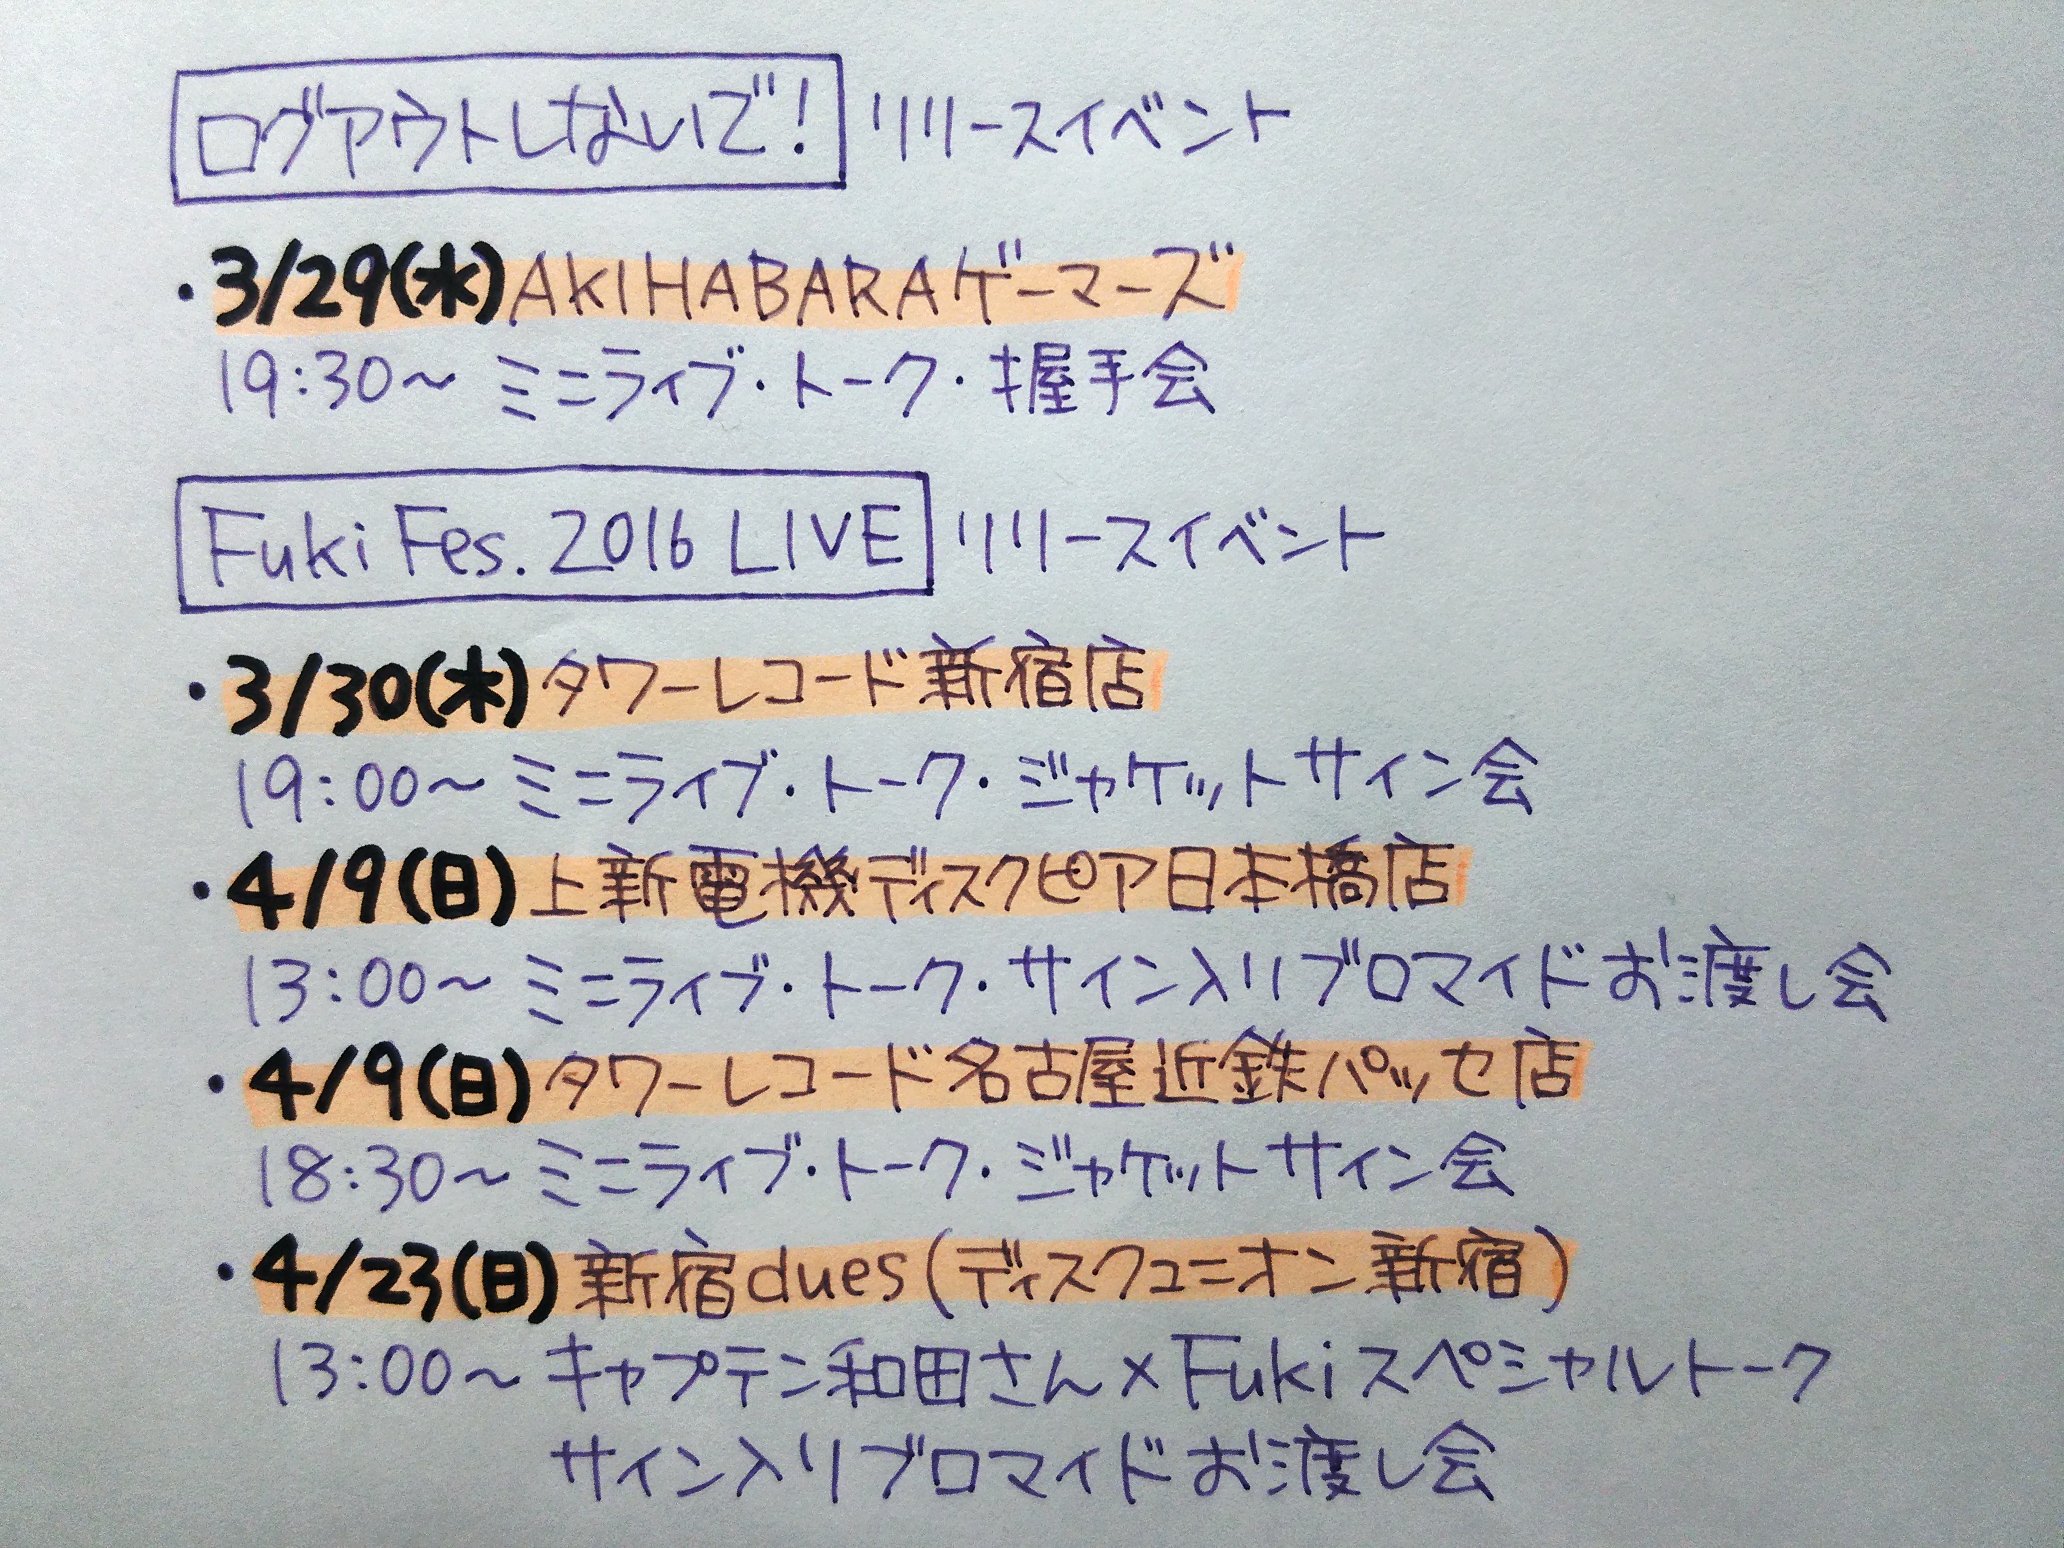 ログアウトしないで! リリースイベント
・3/29(水)AKIHABARAゲーマーズ
19:30〜 ミニライブ・トーク・握手会
Fuki Fes. 2016 LIVE リリースイベント
・3/30(木)タワーレコード新宿店
19:00〜 ミニライブ・トーク・ジャケットサイン会
・4/9(日)上新電機ディスクピア日本橋店
13:00〜 ミニライブ・トーク・サイン入りブロマイドお渡し会
・4/9(日)タワーレコード名古屋近鉄パッセ店
18:30〜 ミニライブ・トーク・ジャケットサイン会
・4/23(日)新宿dues(ディスクユニオン新宿)
13:00〜 キャプテン和田さん×Fukiスペシャルトーク
サイン入りブロマイドお渡し会